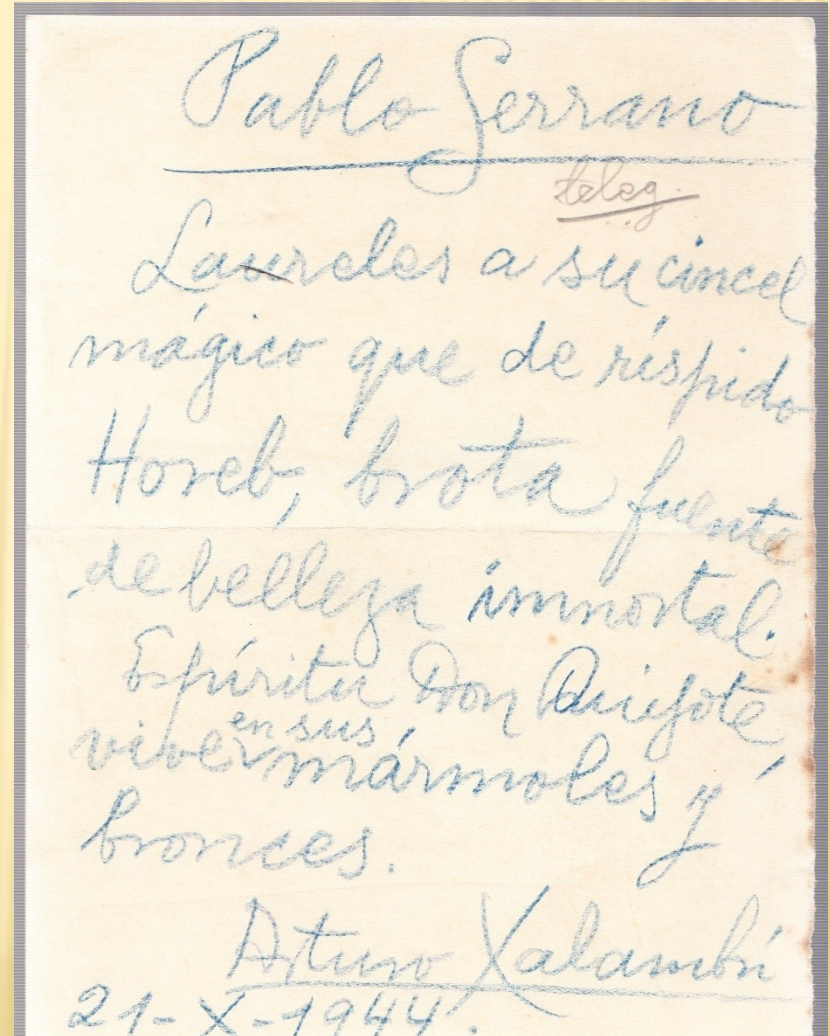 Pablo Serrano
teleg.
Laureles a su cincel
mágico que de ríspido
Horeb, brota fuente
de belleza immortal.
Espíritu Don Quijote,
vive en sus mármoles y
bronces.
Arturo Xalambrí
21-X-1944.